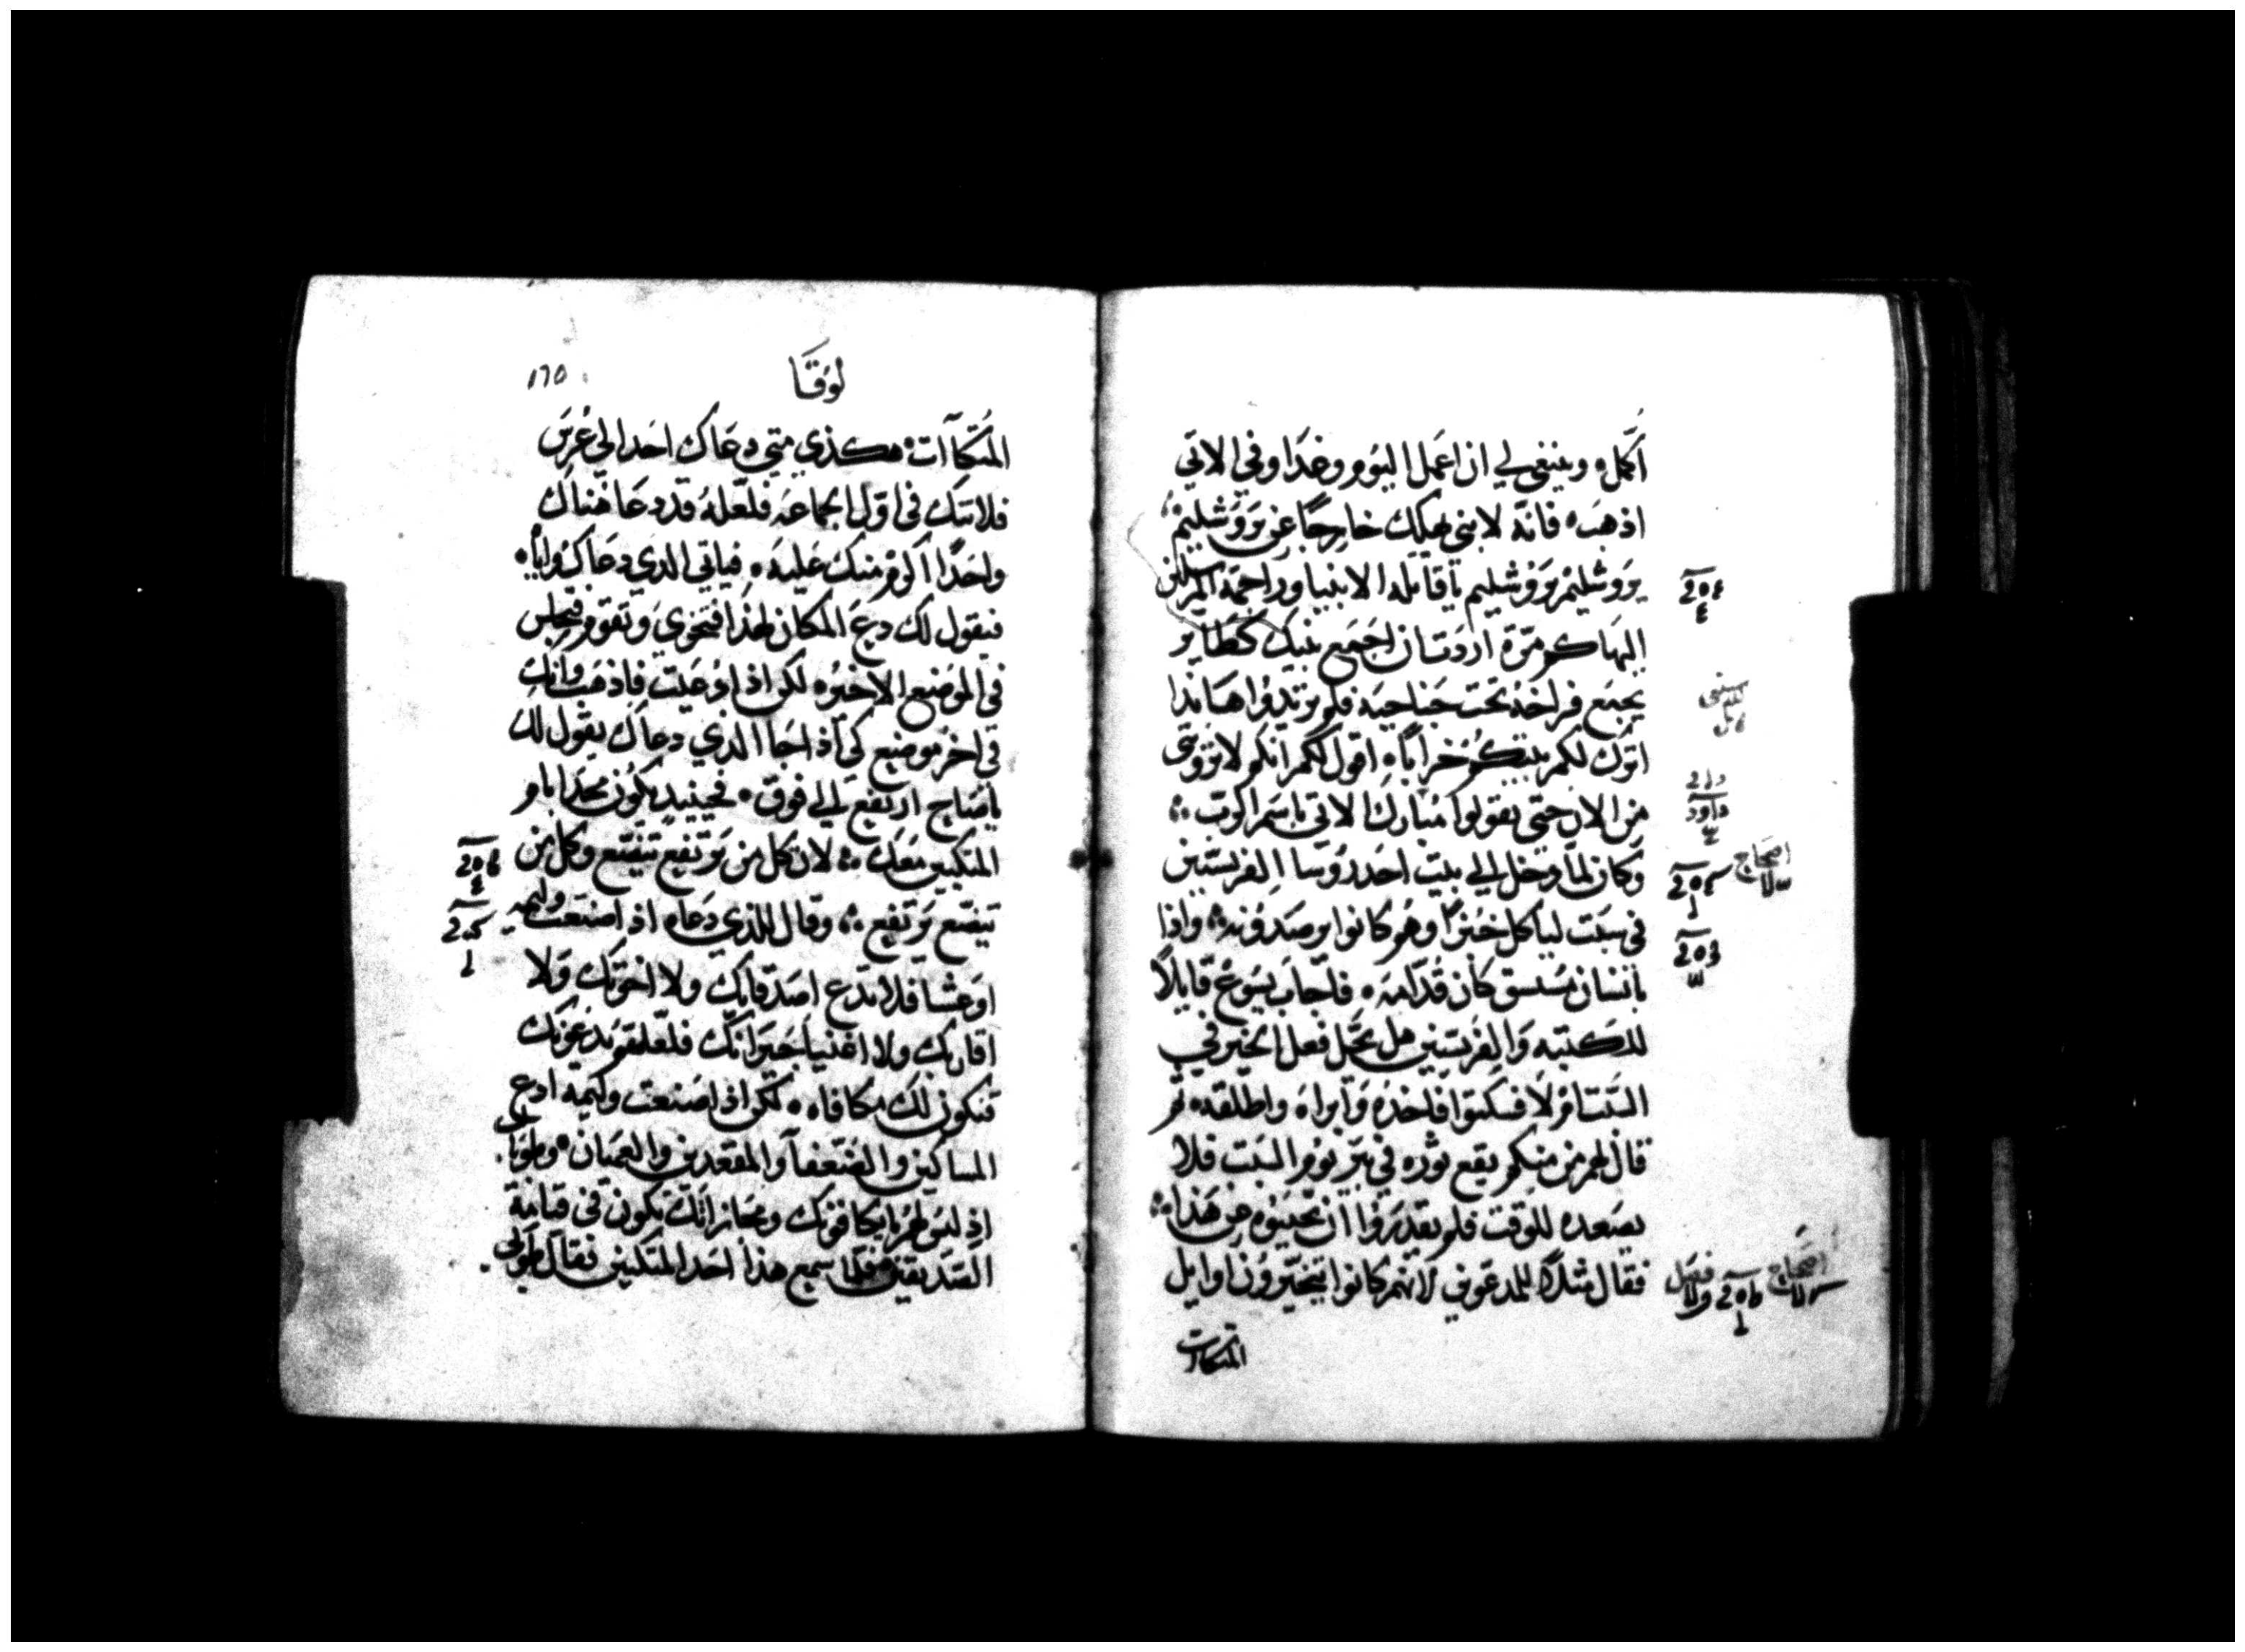 اُكمَل، وينبغي لي ان اعمل اليوم وغدا وفي الاتي
اذهب، فانّه لا نبي يهلك خارجًا عن يروشليم،
يروشليم يروشليم يا قاتله الانبيا وراجمة المرسلين
اليها كم مرّة اردت ان اجمع بنيك كطاير
يجمع فراخه تحت جناحيه فلم تريدوا هاندا
اترك لكم بيتكم خرابًا، اقول لكم انكم لا تروني
من الان حتى تقولوا مبارك الاتي باسم الرب
وكان لمّا دخل الي بيت احد روسا الفريسيين
في سبت لياكل خبزًا وهم كانوا يرصدونه، واذا
بانسان مستسق كان قدّامه، فاجاب يسوع قايلاً
للكتبه والفريسيين هل يحل فعل الخير في
السبت ام لا فسكتوا فاخده وابراه واطلقه، تم
قال لهم من منكم يقع توره في بير يوم السبت فلا
يصعده للوقت فلم يقدروا ان يجيبوه عن هذا
فقال مثلاً للمدعوين لانهم كانوا يتخيّرون اوايل
المتكات
اصحاح
اصحاح
فصل
لوقا
١٦٥
المتكاآت، هكذي متي دعاك احد الي عرس
فلا تتك في اوّل الجماعه فلعله قد دعا هناك
واحدًا اكرم منك عليه، فياتي الدي دعاك واياه
فيقول لك دع المكان لهذا فتخزي وتقوم فتجلس
في الموضع الاخير، لكن اذا دعيت فاذهب واتك
في اخر موضع كي اذا جا الذي دعاك يقول لك
يا صاح ارتفع الي فوق، فحينيد يكون مجدا امام
المتكيين معك، لان كل من يرتفع يتضع وكل من
يتضع يرتفع، وقال للذي دعاه اذا صنعت وليمه
او عشا فلا تدع اصدقايك ولا اخوتك ولا
اقاربك ولا اغنيا جيرانك فلعلهم يدعونك
فتكون لك مكافاه، لكن اذا صنعت وليمه ادع
المساكين والضعفا والمقعدين والعميان، وطوباك
اذ ليس لهم ما يكافونك ومجازاتك تكون في قيامة
الصديقين، فلما سمع هذا احد المتكيين فقال طوبي